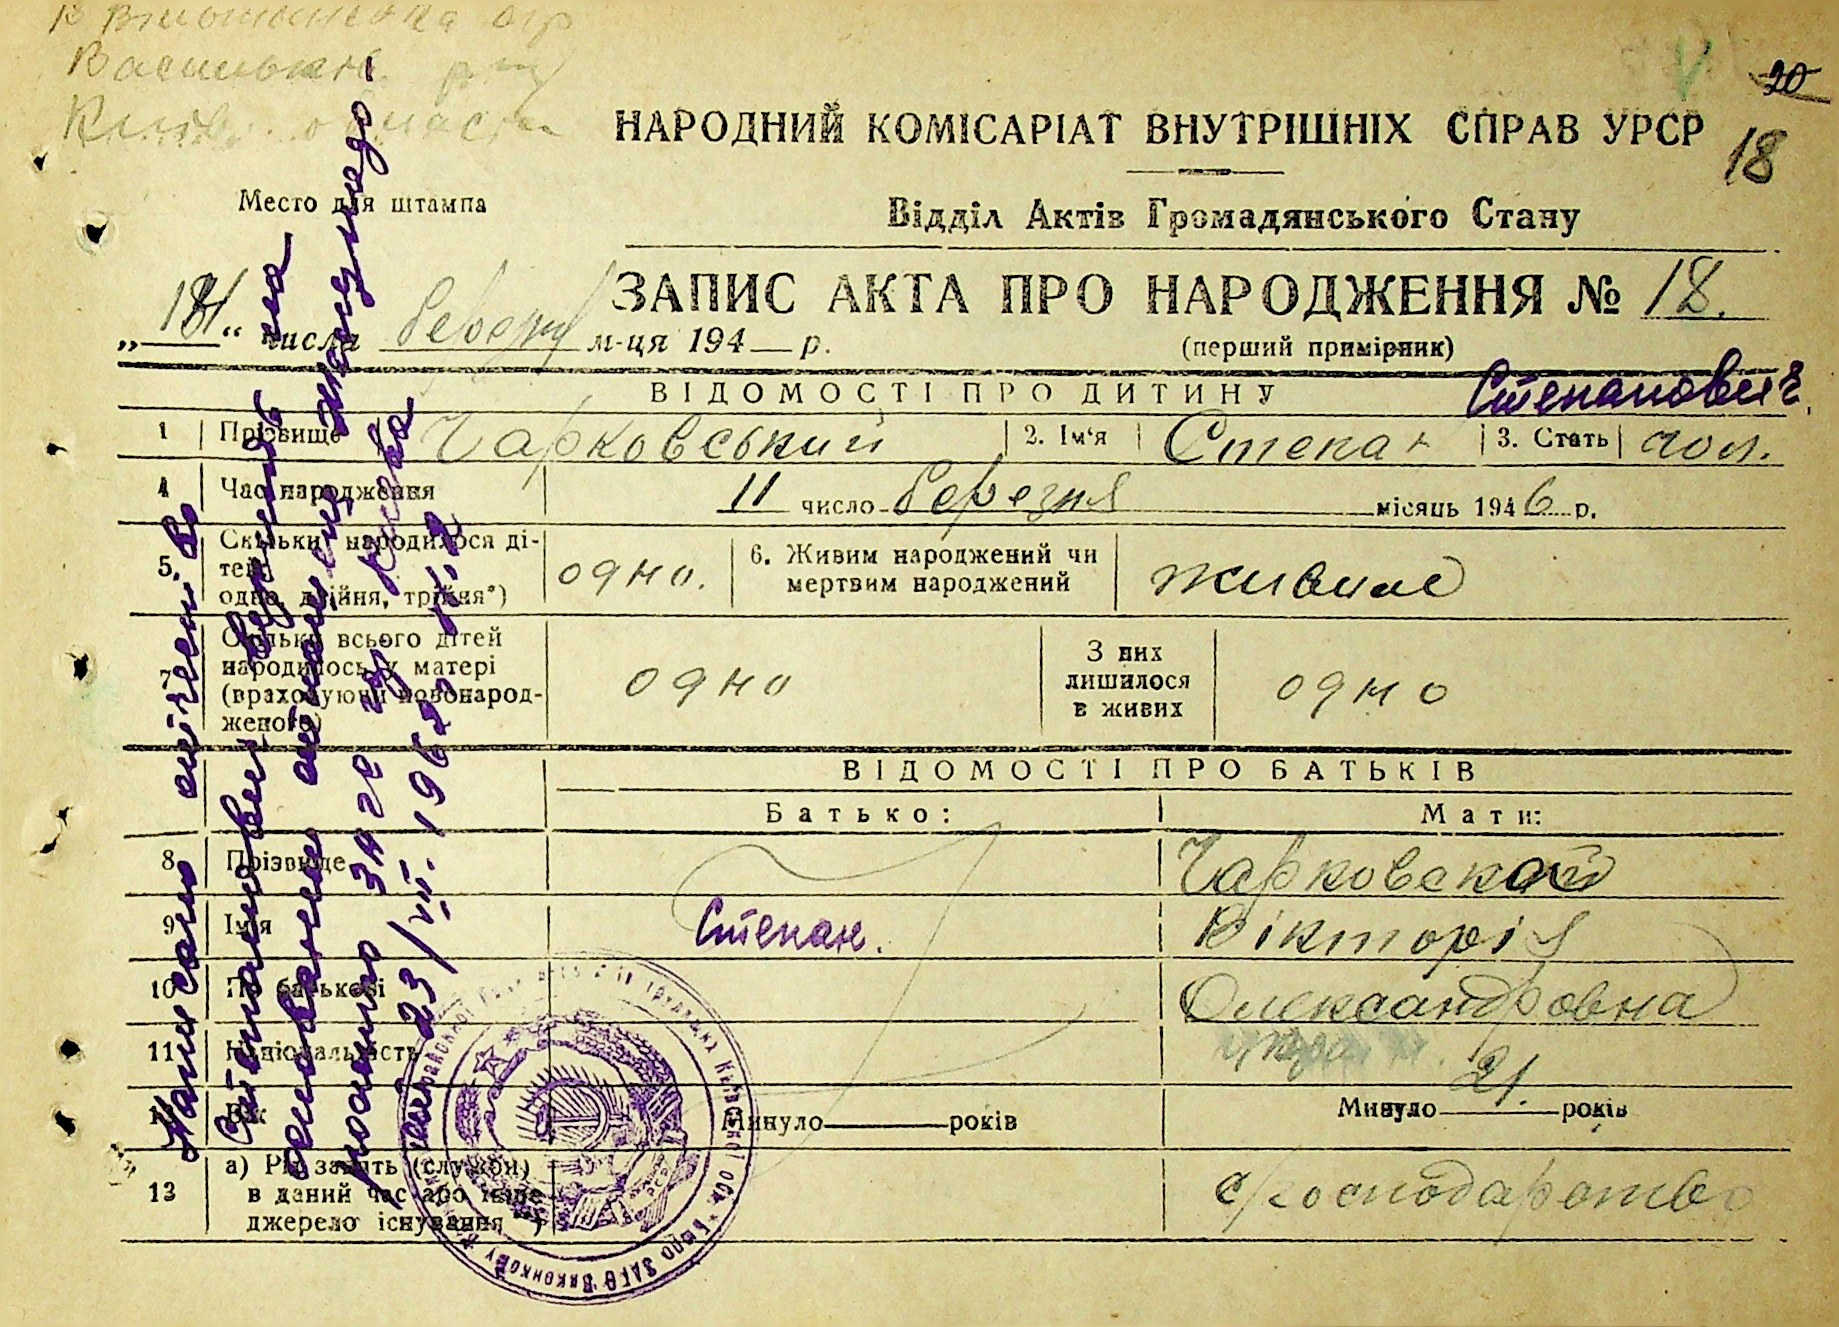 Васильков. р-ну
НАРОДНИЙ КОМІСАРІАТ ВНУТРІШНІХ СПРАВ УРСР
20
18
Место для штампа
Відділ Актів Громадянського Стану
ЗАПИС АКТА ПРО НАРОДЖЕННЯ № 18.
„ “ числа березня м-ця 194 р.
(перший примірник)
ВІДОМОСТІ ПРО ДИТИНУ
Степанович.
1 Прізвище Чарковський 2. Ім'я Степан 3. Стать чол.
4 Час народження 11 число березня місяць 1946 р.
5. Скільки народилося ді-
тей:
одно, двійня, трійня*) одно. 6. Живим народжений чи
мертвим народжений живим
7 Скільки всього дітей
народилось у матері
(враховуючи новонарод-
женого) одно З них
лишилося
в живих одно
ВІДОМОСТІ ПРО БАТЬКІВ
Батько: Мати:
8 Прізвище Чарковской
9 Ім'я Степан. Вікторія
10 По батькові Олександровна
11 Національність укра
12 Вік Минуло років Минуло 21. років
13 а) Рід занять (служби)
в даний час або інше
джерело існування **) с/господарство
Написано отчество
Степанович верить на
основании
рошино ЗАГС г. Киева
23/VII. 1962